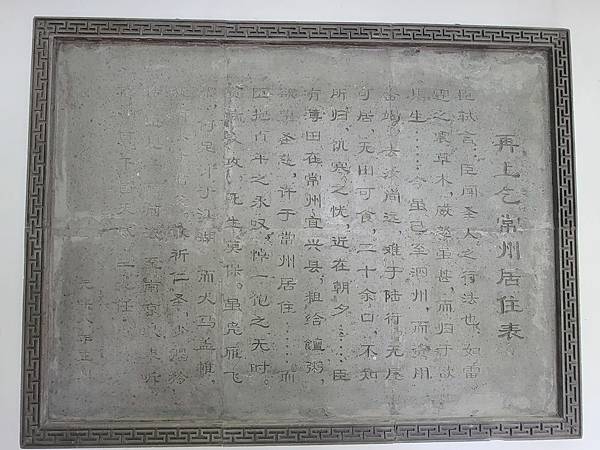 再上乞常州居住表
臣轼言：臣闻圣人之行法也，如雷
霆之震草木，威怒虽甚，而归于欲
其生……今虽已至泗州，而资用
罄竭，去汝尚远，难于陆行，无屋
可居，无田可食，二十余口，不知
所归，饥寒之忧，近在朝夕……臣
有薄田在常州宜兴县，粗给饘粥，
欲望圣慈，许于常州居住……而
臣抱百年之永叹，悼一饱之无时，
死生莫保。虽凫雁飞
江湖，而犬马盖帷，
祈仁圣，少赐
至南京
之至任